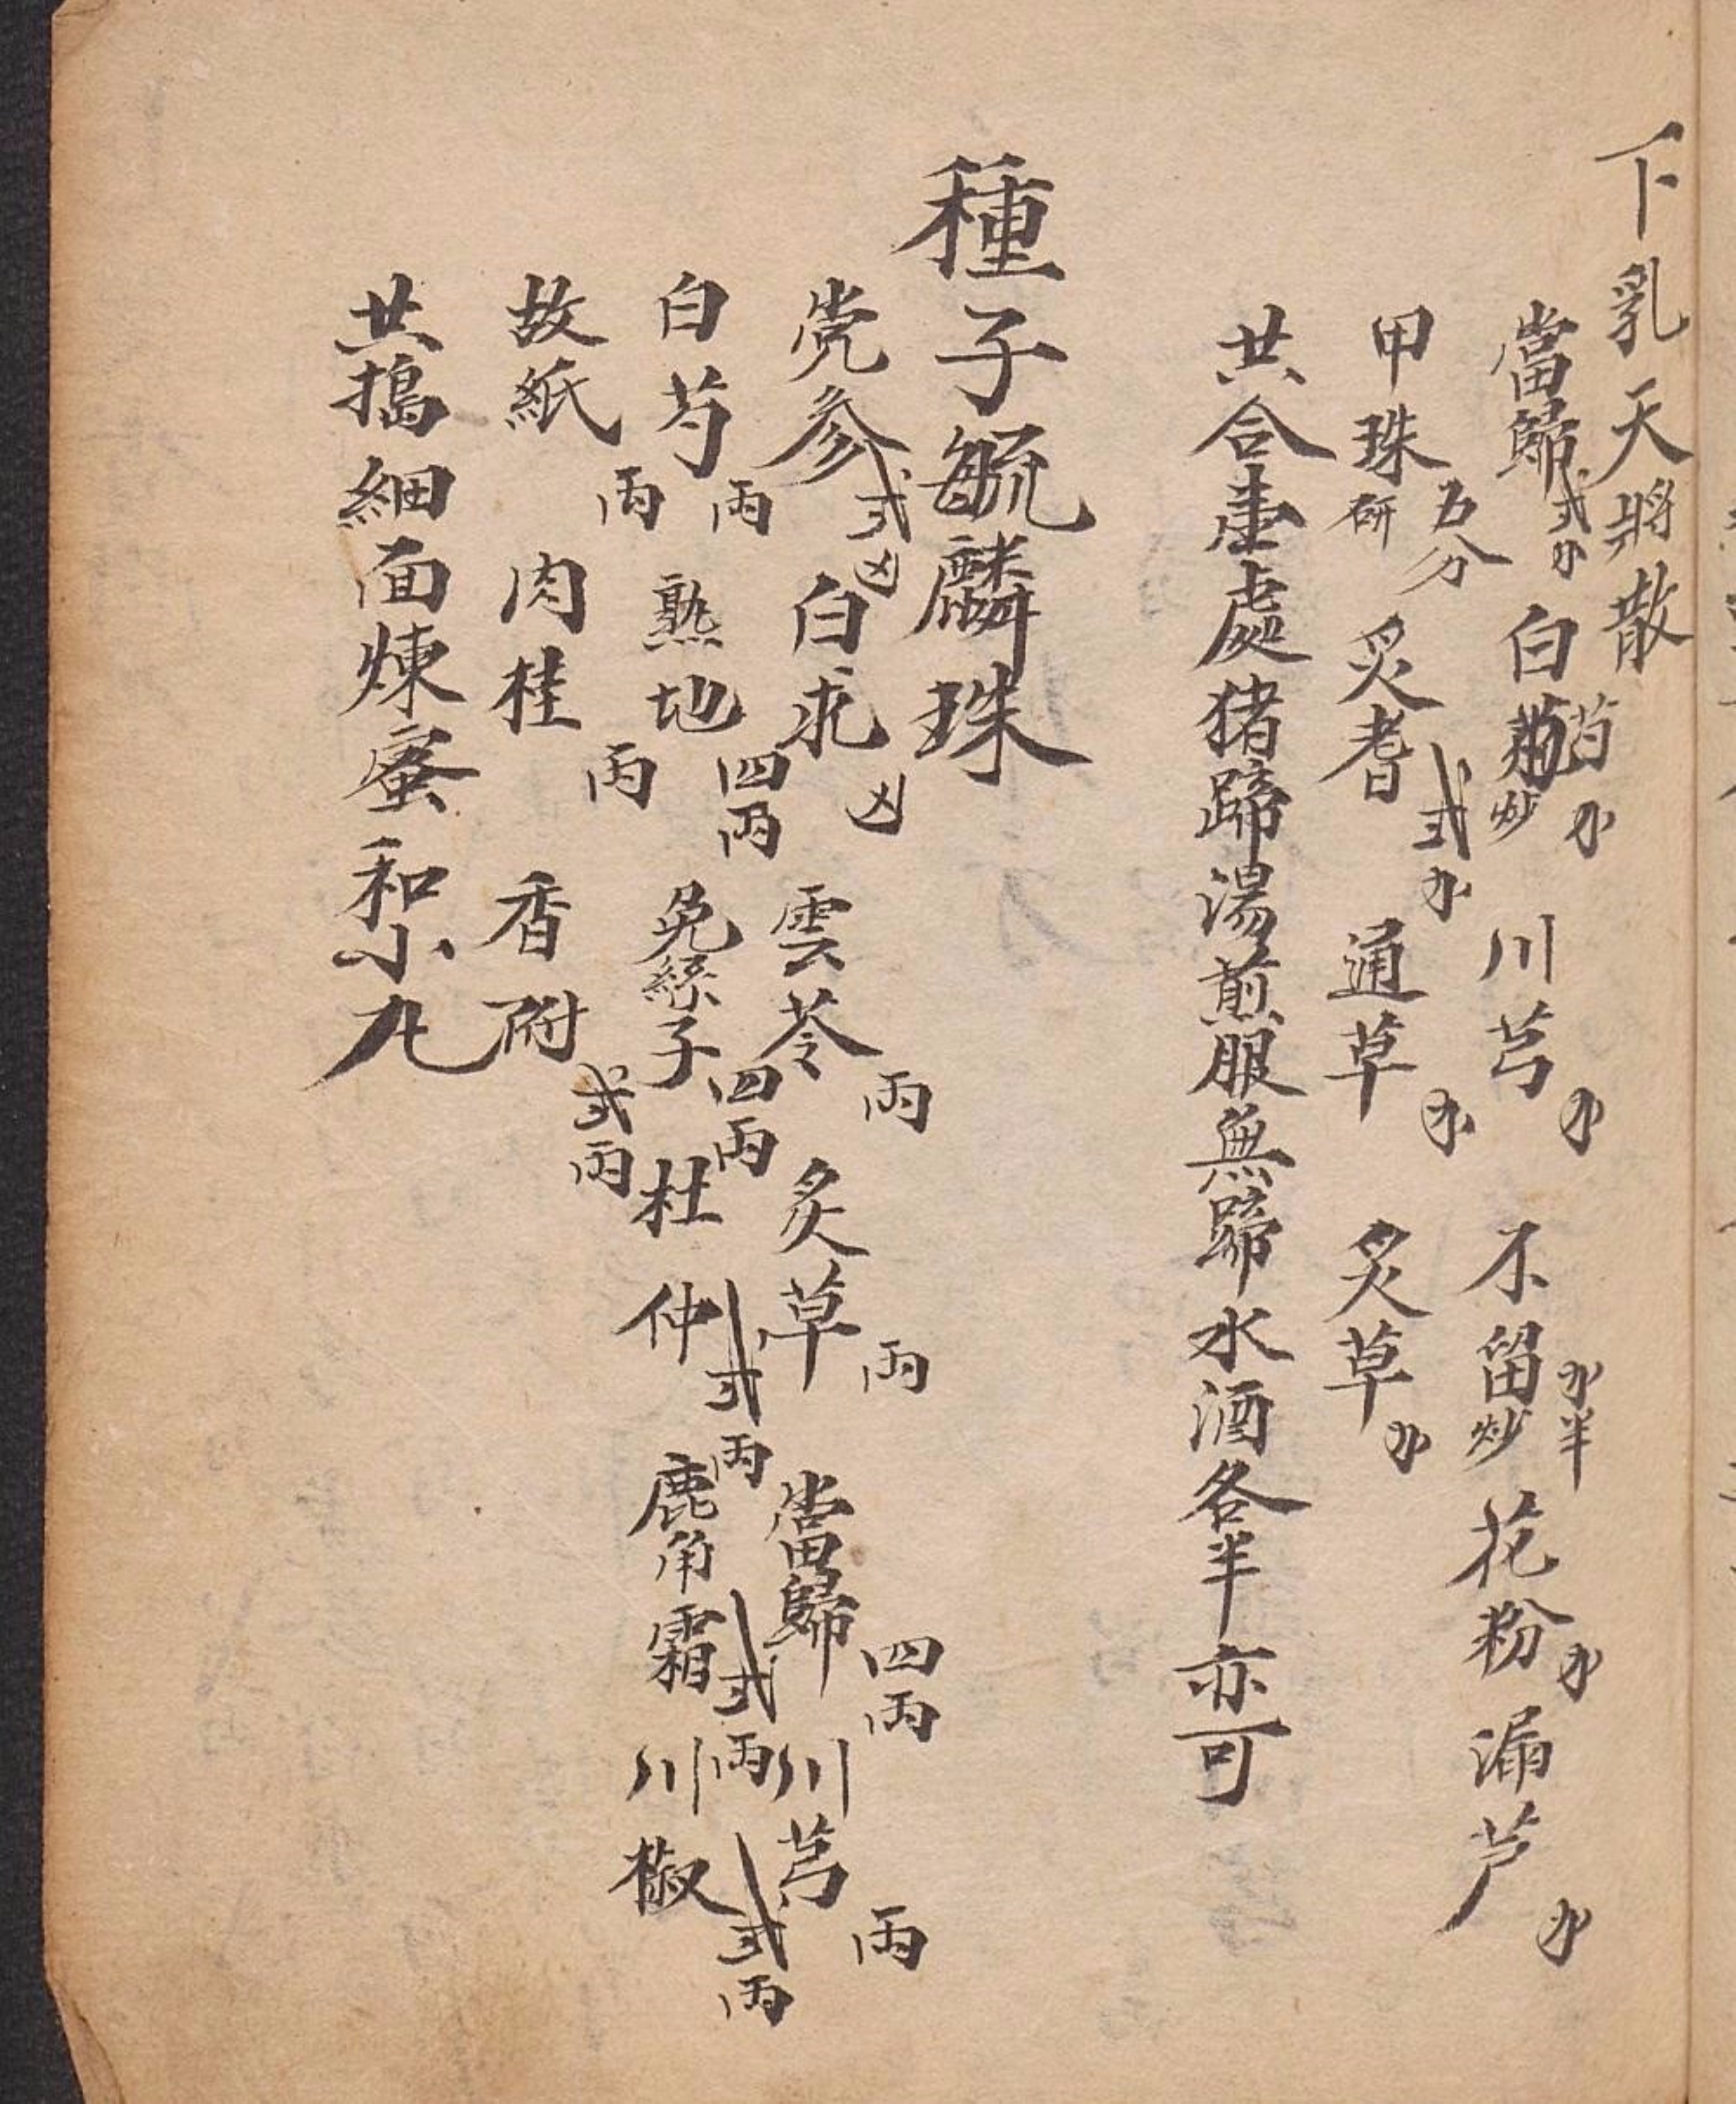 下乳天將散
當歸弍卜 白芍炒 川芎 不留炒半 花粉 漏芦
甲珠研五分 炙耆弍 通草 炙草
共合壹處猪蹄湯煎服無蹄水酒各半亦可
種子毓麟珠
党參弍 白朮 雲苓兩 炙草兩 當歸四兩 川芎兩
白芍兩 熟地四兩 免絲子四兩 杜仲弍兩 鹿角霜弍兩 川椒弍兩
故紙兩 肉桂兩 香附弍兩
共搗細面煉蜜和小丸